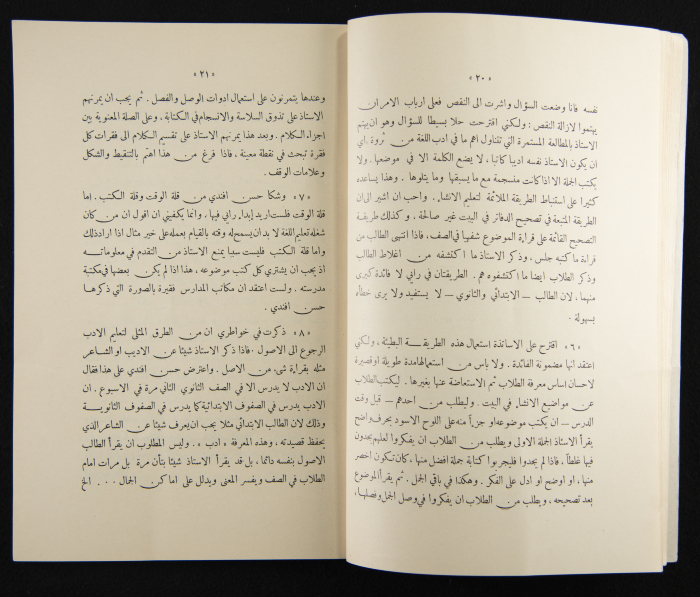 «٢٠»
نفسه فانا وضعت السؤال واشرت الى النقص فعلى ارباب الامر ان
يهتموا لازالة النقص: ولكني اقترحت حلا بسيطا للسؤال وهو ان يهتم
الاستاذ بالمطالعة المستمرة التي تتناول اهم ما في ادب اللغة من ثروة، اي
ان يكون الاستاذ نفسه اديبا كاتبا، لا يضع الكلمة الا في موضعها. ولا
يكتب الجملة الا اذا كانت منسجمة مع ما يسبقها وما يتلوها. وهذا يساعده
كثيرا على استنباط الطريقة الملائمة لتعليم الانشاء. واحب ان اشير الى ان
الطريقة المتبعة في تصحيح الدفاتر في البيت غير صالحة، وكذلك طريقة
التصحيح القائمة على قراءة الموضوع شفهيا في الصف، فاذا انتهى الطالب من
قراءة ما كتبه جلس، وذكر الاستاذ ما اكتشفه من اغلاط الطالب
وذكر الطلاب ايضا ما اكتشفوه هم. الطريقتان في رابي لا فائدة كبرى
منهما، لان الطالب ــ الابتدائي والثانوي ــ لا يستفيد ولا يرى خطأه
بسهولة.
«٦» اقترح على الاساتذة استعمال هذه الطريقة البطيئة، ولكني
اعتقد انها مضمونة الفائدة. ولا باس من استعمالها مدة طويلة او قصيرة
لاحسان اساس معرفة الطلاب ثم الاستعاضة عنها بغيرها. ليكتب الطلاب
عن مواضيع الانشاء في البيت. وليطلب من احدهم ــ قبل وقت
الدرس ــ ان يكتب موضوعه او جزءاً منه على اللوح الاسود بحرف واضح
يقرأ الاستاذ الجملة الاولى ويطلب من الطلاب ان يفكروا لعلهم يجدون
فيها غلطاً، فاذا لم يجدوا فليجربوا كتابة جملة افضل منها، كان تكون اخصر
منها، او اوضح او ادل على الفكر. وهكذا في باقي الجمل. ثم يقرأ الموضوع
بعد تصحيحه، ويطلب من الطلاب ان يفكروا في وصل الجمل وفصلها،
«٢١»
وعندها يتمرنون على استعمال ادوات الوصل والفصل. ثم يجب ان يمرنهم
الاستاذ على تذوق السلاسة والانسجام في الكتابة. وعلى الصلة المعنوية بين
اجزاء الكلام. وبعد هذا يمرنهم الاستاذ على تقسيم الكلام الى فقرات كل
فقرة تبحث في نقطة معينة، فاذا فرغ من هذا اهتم بالتنقيط والشكل
وعلامات الوقف.
«٧» وشكا حسن افندي من قلة الوقت وقلة الكتب. اما
قلة الوقت فلست اريد ابداء رابي فيها، وانما يكفيني ان اقول ان من كان
شغله تعليم اللغة لا بد ان يسمح له وقته بالقيام بعمله على خير مثال اذا اراد ذلك
واما قلة الكتب فليست سببا يمنع الاستاذ من التقدم في معلوماته
اذ يجب ان يشتري كل كتب موضوعه، هذا اذا لم يكن بعضها في مكتبة
مدرسته. ولست اعتقد ان مكاتب المدارس فقيرة بالصورة التي ذكرها
حسن افندي.
«٨» ذكرت في خواطري ان من الطرق المثلى لتعليم الادب
الرجوع الى الاصول، فاذا ذكر الاستاذ شيئا عن الاديب او الشاعر
مثله بقراءة شيء من الاصل. واعترض حسن افندي على هذا فقال
ان الادب لا يدرس الا في الصف الثانوي الثاني مرة في الاسبوع. ان
الادب يدرس في الصفوف الابتدائية كما يدرس في الصفوف الثانوية
وذلك لان الطالب الابتدائي مثلا يجب ان يعرف شيئا عن الشاعر الذي
يحفظ قصيدته، وهذه المعرفة «ادب». وليس المطلوب ان يقرأ الطالب
الاصول بنفسه دائما، بل قد يقرأ الاستاذ شيئا بتأن مرة بل مرات امام
الطلاب في الصف ويفسر المعنى ويدلل على اماكن الجمال . . . الخ